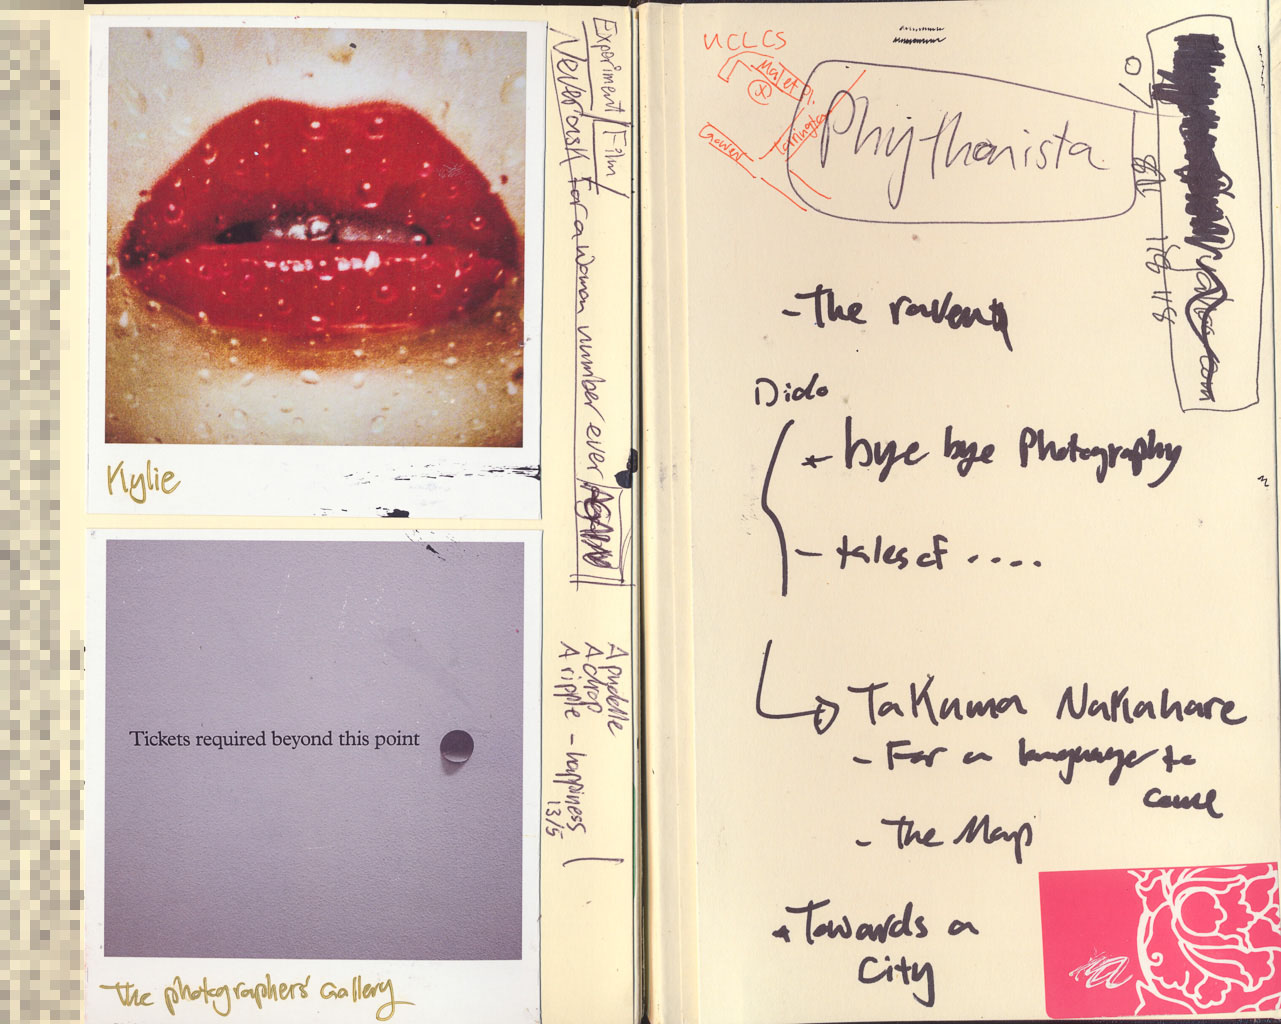 Kylie
Tickets required beyond this point
The photographers' Gallery
Experiment/Film/
Never ask for a woman number ever AGAIN
A puddle
A drop
A ripple - happiness
13/5
UCLCS
Malet Pl.
Torrington
Gower
Phythonista
07
718
118 118
com
- The raven
Dido
bye bye Photography
- tales of ....
Takuma Nakahare
- For a language to
come
- The Map
Towards a
City